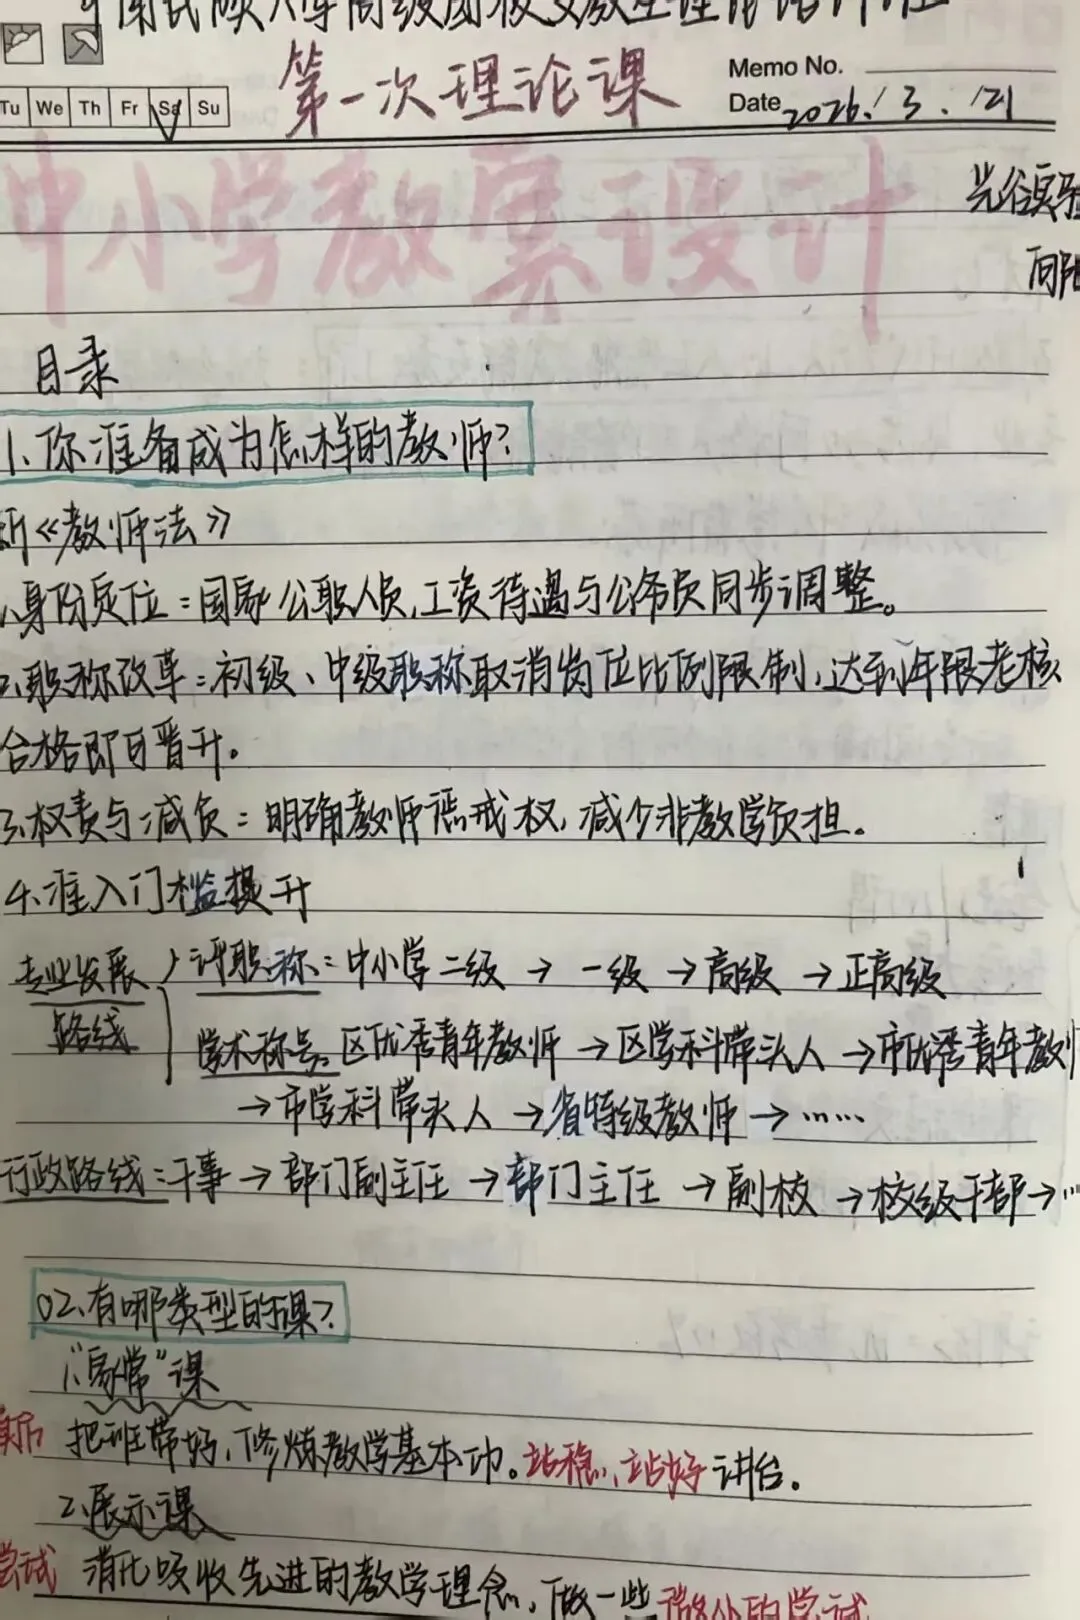 第一次理论课
Memo No.
Tu We Th Fr Sa Su
Date 2026.3.21
中小学教案设计
光谷实验
目录
1.你准备成为怎样的教师?
新《教师法》
1.身份定位:国家公职人员,工资待遇与公务员同步调整。
2.职称改革:初级、中级职称取消岗位比例限制,达到年限考核
合格即自晋升。
3.权责与减负:明确教师惩戒权,减少非教学负担。
4.准入门槛提升
专业发展路线
评职称:中小学二级→一级→高级→正高级
学术称号:区优秀青年教师→区学科带头人→市优秀青年教师
→市学科带头人→省特级教师→……
行政路线:干事→部门副主任→部门主任→副校→校级干部→…
02.有哪类型的课?
1."家常"课
把班带好,修炼教学基本功。站稳、站好讲台。
2.展示课
尝试 消化吸收先进的教学理念,做一些微小的尝试